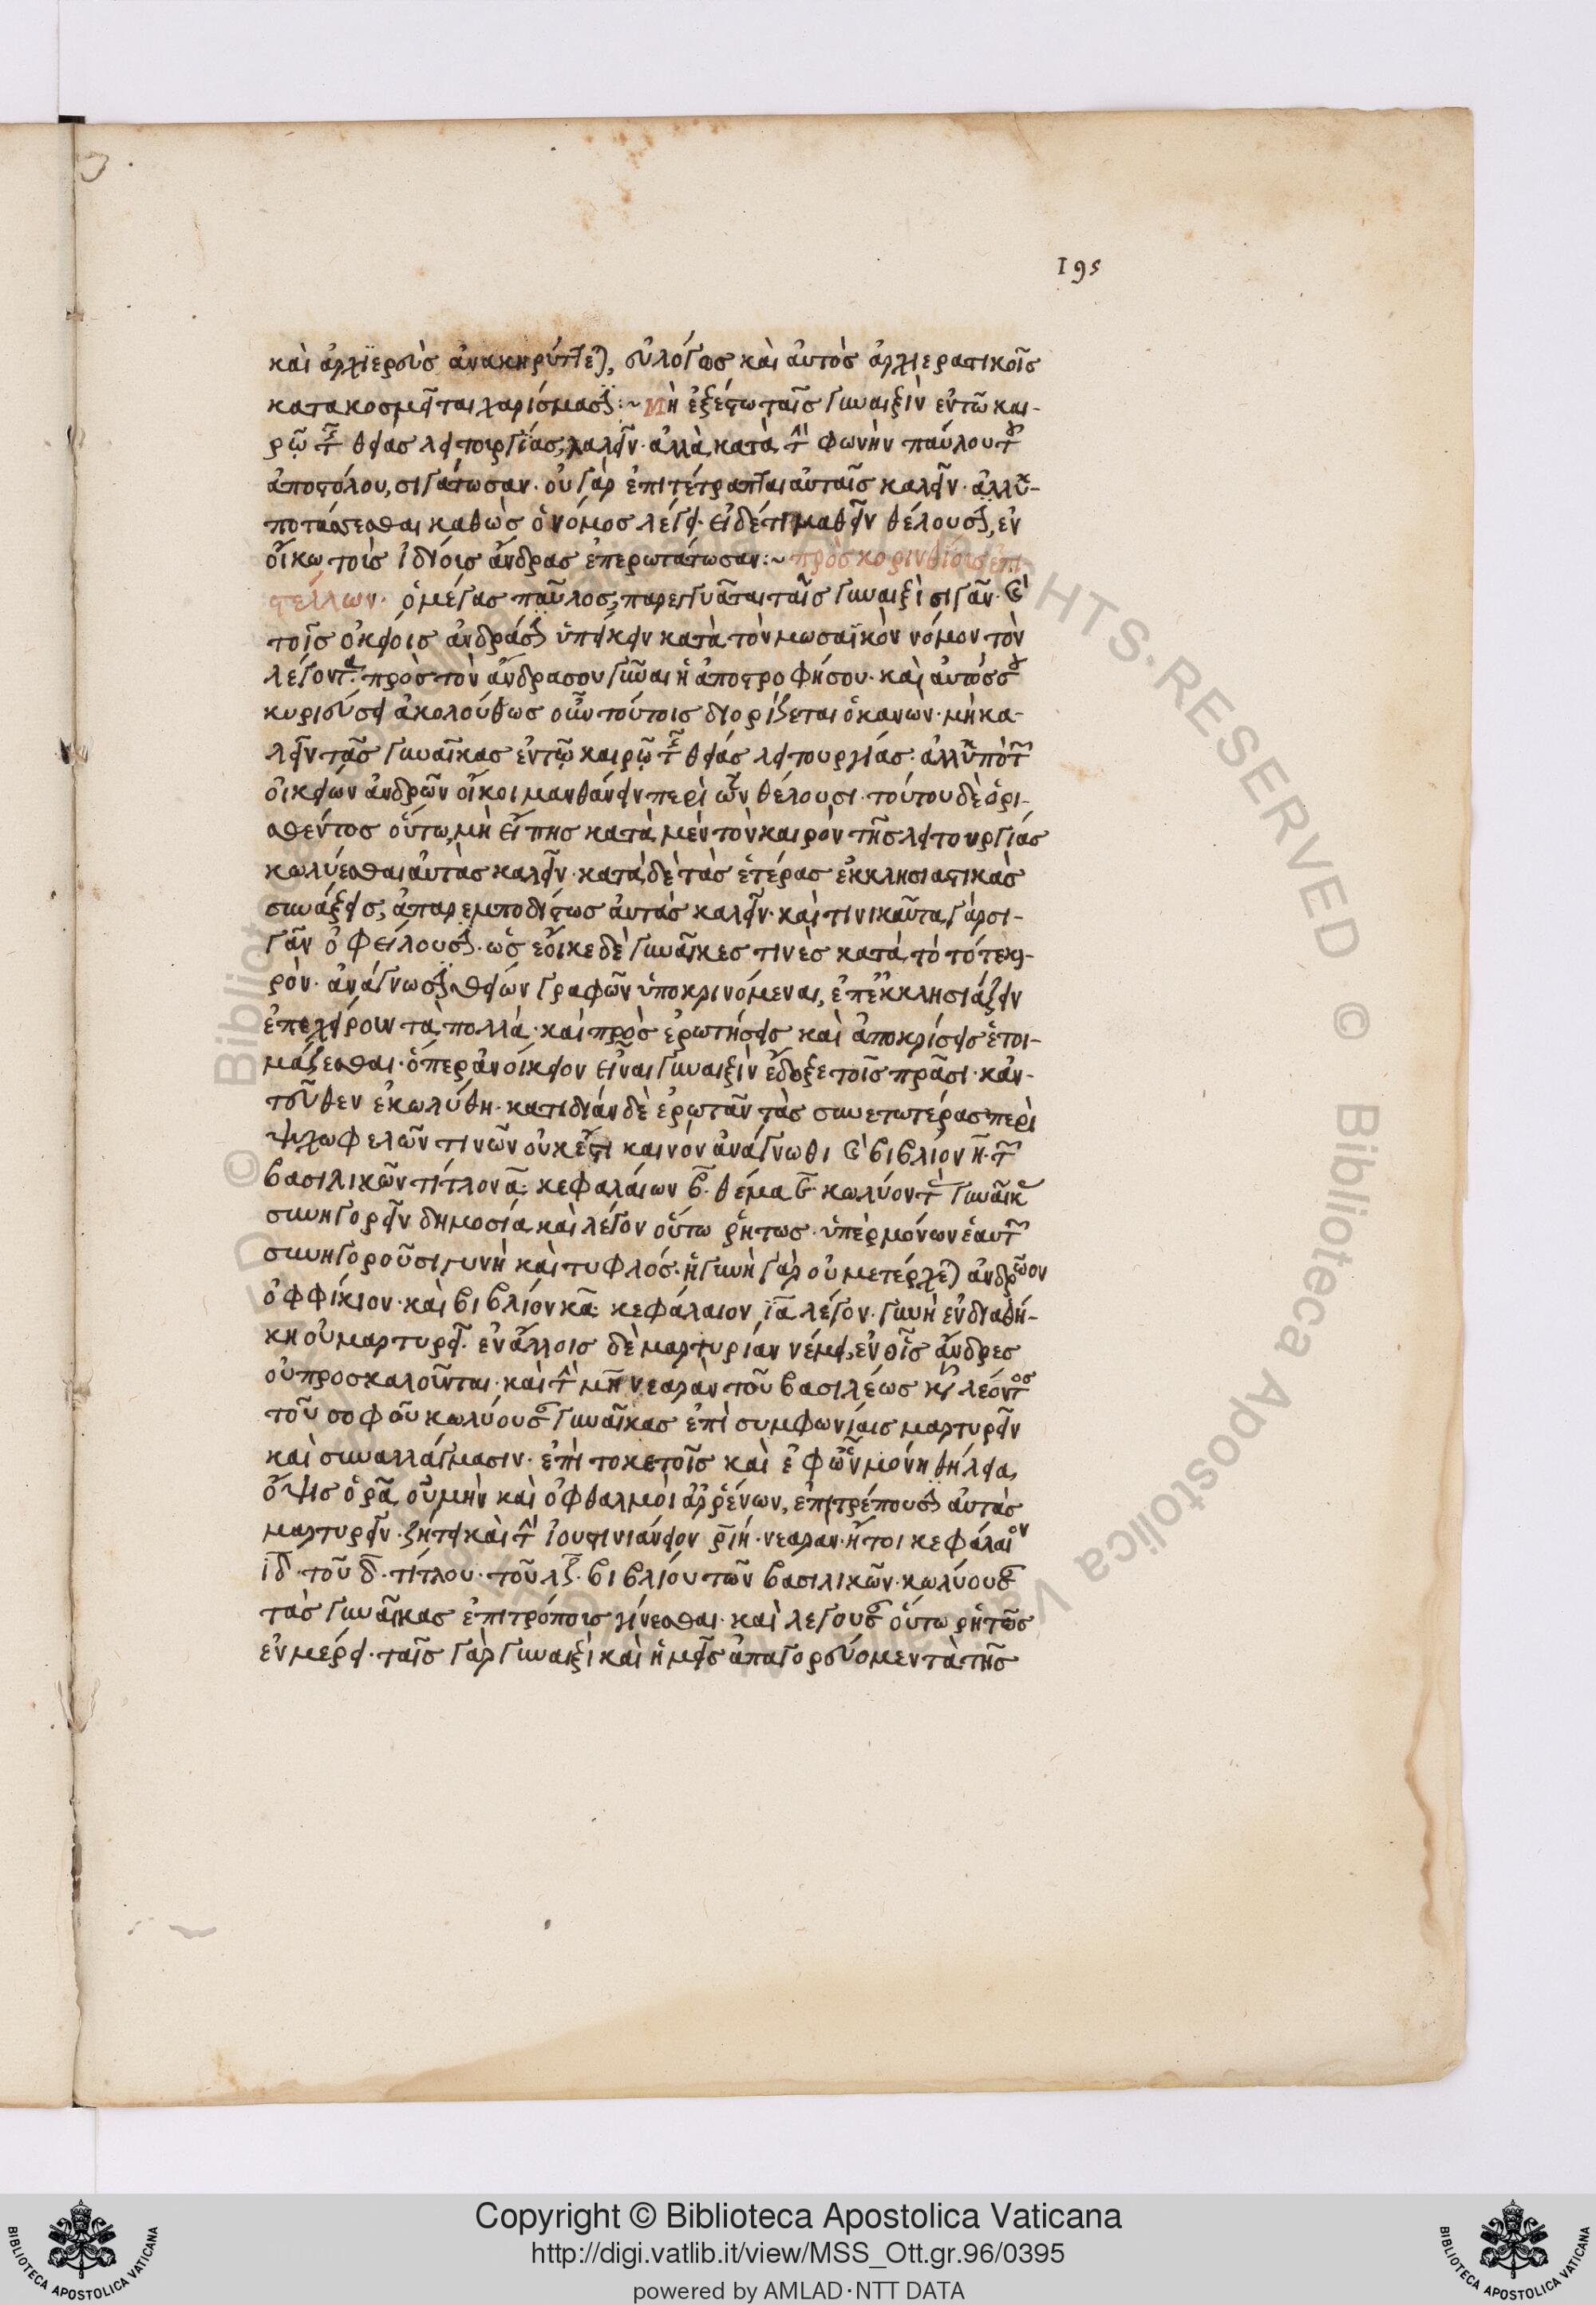 195
καὶ ἀρχιερεὺς ἀνακηρύττεται, εὐλόγως καὶ αὐτὸς ἀρχιερατικοῖς
κατακοσμεῖται χαρίσμασι :~ Μὴ ἐξέστω ταῖς γυναιξὶν ἐν τῶ και-
ρῶ τῆς θείας λειτουργίας, λαλεῖν· ἀλλὰ κατὰ τὴν φωνὴν παύλου τοῦ
ἀποστόλου, σιγάτωσαν· οὐ γὰρ ἐπιτέτραπται αὐταῖς λαλεῖν· ἀλλ' ὑ-
ποτάσσεσθαι καθὼς ὁ νόμος λέγει· εἰ δέ τι μαθεῖν θέλουσι, ἐν
οἴκω τοὶς ἰδίοις ἄνδρας ἐπερωτάτωσαν :~ πρὸς κορινθίοις ἐπι
στέλλων· ὁ μέγας παῦλος, παρεγγυᾶται ταῖς γυναιξὶ σιγᾶν· καὶ
τοῖς οἰκείοις ἀνδράσι ὑπείκειν κατὰ τὸν μωσαϊκὸν νόμον τὸν
λέγοντα· πρὸς τὸν ἄνδρα σου γύναι ἡ ἀποστροφή σου· καὶ αὐτός σου
κυριεύσει ἀκολούθως οὖν τούτοις διορίζεται ὁ κανών· μὴ λα-
λεῖν τὰς γυναῖκας ἐν τῶ καιρῶ τῆς θείας λειτουργίας· ἀλλ' ὑπὸ τῶν
οἰκείων ἀνδρῶν οἴκοι μανθάνειν περὶ ὧν θέλουσι· τούτου δὲ ὁρι-
σθέντος οὕτω, μὴ εἴπης κατὰ μὲν τὸν καιρὸν τῆς λειτουργίας
κωλύεσθαι αὐτὰς λαλεῖν· κατὰ δὲ τὰς ἑτέρας ἐκκλησιαστικὰς
συνάξεις, ἀπαρεμποδίστως αὐτὰς λαλεῖν· καὶ τινικαῦτα γὰρ σι-
γᾶν ὀφείλουσι· ὡς ἔοικε δὲ γυναῖκες τινὲς κατὰ τὸ τότε και-
ρὸν· ἀνάγνωσι θείων γραφῶν ὑποκρινόμεναι, ἐπ' ἐκκλησιάζειν
ἐπεχείρουν τὰ πολλὰ· καὶ πρὸς ἐρωτήσεις καὶ ἀποκρίσεις ἑτοι-
μάζεσθαι· ὅπερ ἀνοίκειον εἶναι γυναιξὶν ἔδοξε τοῖς πράσι· κἀν-
τεῦθεν ἐκωλύθη· κατιδίαν δὲ ἐρωτᾶν τὰς συνετωτέρας περὶ
ψυχωφελῶν τινῶν οὐκ ἔστι καινόν ἀνάγνωθι καὶ βιβλίον η̅· τῶν
βασιλικῶν τίτλον α̅· κεφαλαίων β̅· θέμα β̅· κωλύον τὰς γυναῖκας
συνηγορεῖν δημοσία καὶ λέγον οὕτω ῥήτως· ὑπὲρ μόνων ἑαυτῶν
συνηγοροῦσι γυνὴ καὶ τυφλός· ἡ γυνὴ γὰρ οὐ μετέρχεται ἀνδρῶον
ὀφφίκιον· καὶ βιβλίον κα̅· κεφάλαιον ια̅ λέγον· γυνὴ ἐν διαθή-
κη οὐ μαρτυρεῖ· ἐν ἄλλοις δὲ μαρτυρίαν νέμει, ἐν οἷς ἄνδρες
οὐ προσκαλοῦνται· καὶ τὴν μη̅ νεαρὰν τοῦ βασιλέως κυροῦ λέοντος
τοῦ σοφοῦ κωλύουσαν γυναῖκας ἐπὶ συμφωνίαις μαρτυρεῖν
καὶ συναλλάγμασιν· ἐπὶ τοκετοῖς καὶ ἐφ' ὧν μόνη θήλεια
ὄψις ὁρᾶ, οὐ μὴν καὶ ὀφθαλμοὶ ἀρρένων, ἐπιτρέπουσι αὐτὰς
μαρτυρεῖν· ζήτει καὶ τὴν ἰουστινιάνειον ριη̅· νεαρὰν· ἤτοι κεφάλαιον
ιδ̅· τοῦ δ̅· τίτλου· τοῦ λζ̅· βιβλίου τῶν βασιλικῶν· κωλύουσαν
τὰς γυναῖκας ἐπιτρόποις γίνεσθαι· καὶ λέγουσαν οὕτω ρητῶς
ἐν μέρει· ταῖς γὰρ γυναιξὶ καὶ ἡμεῖς ἀπαγορεύομεν τὰ τῆς
Copyright © Biblioteca Apostolica Vaticana
http://digi.vatlib.it/view/MSS_Ott.gr.96/0395
powered by AMLAD·NTT DATA